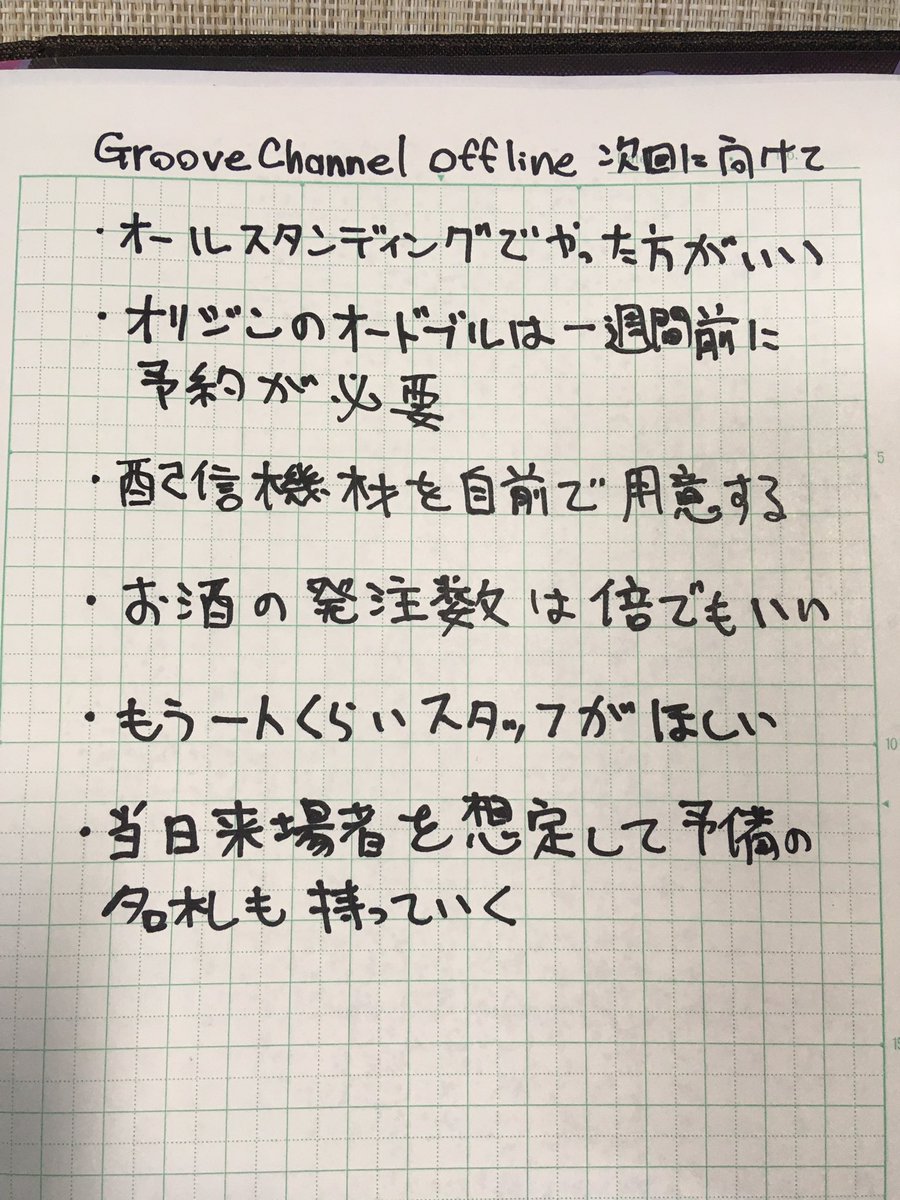 GrooveChannel offline 次回に向けて
・オールスタンディングでやった方がいい
・オリジンのオードブルは一週間前に
予約が必要
・配信機材を自前で用意する
・お酒の発注数は倍でもいい
・もう一人くらいスタッフがほしい
・当日来場者を想定して予備の
名札も持っていく
5
10
15